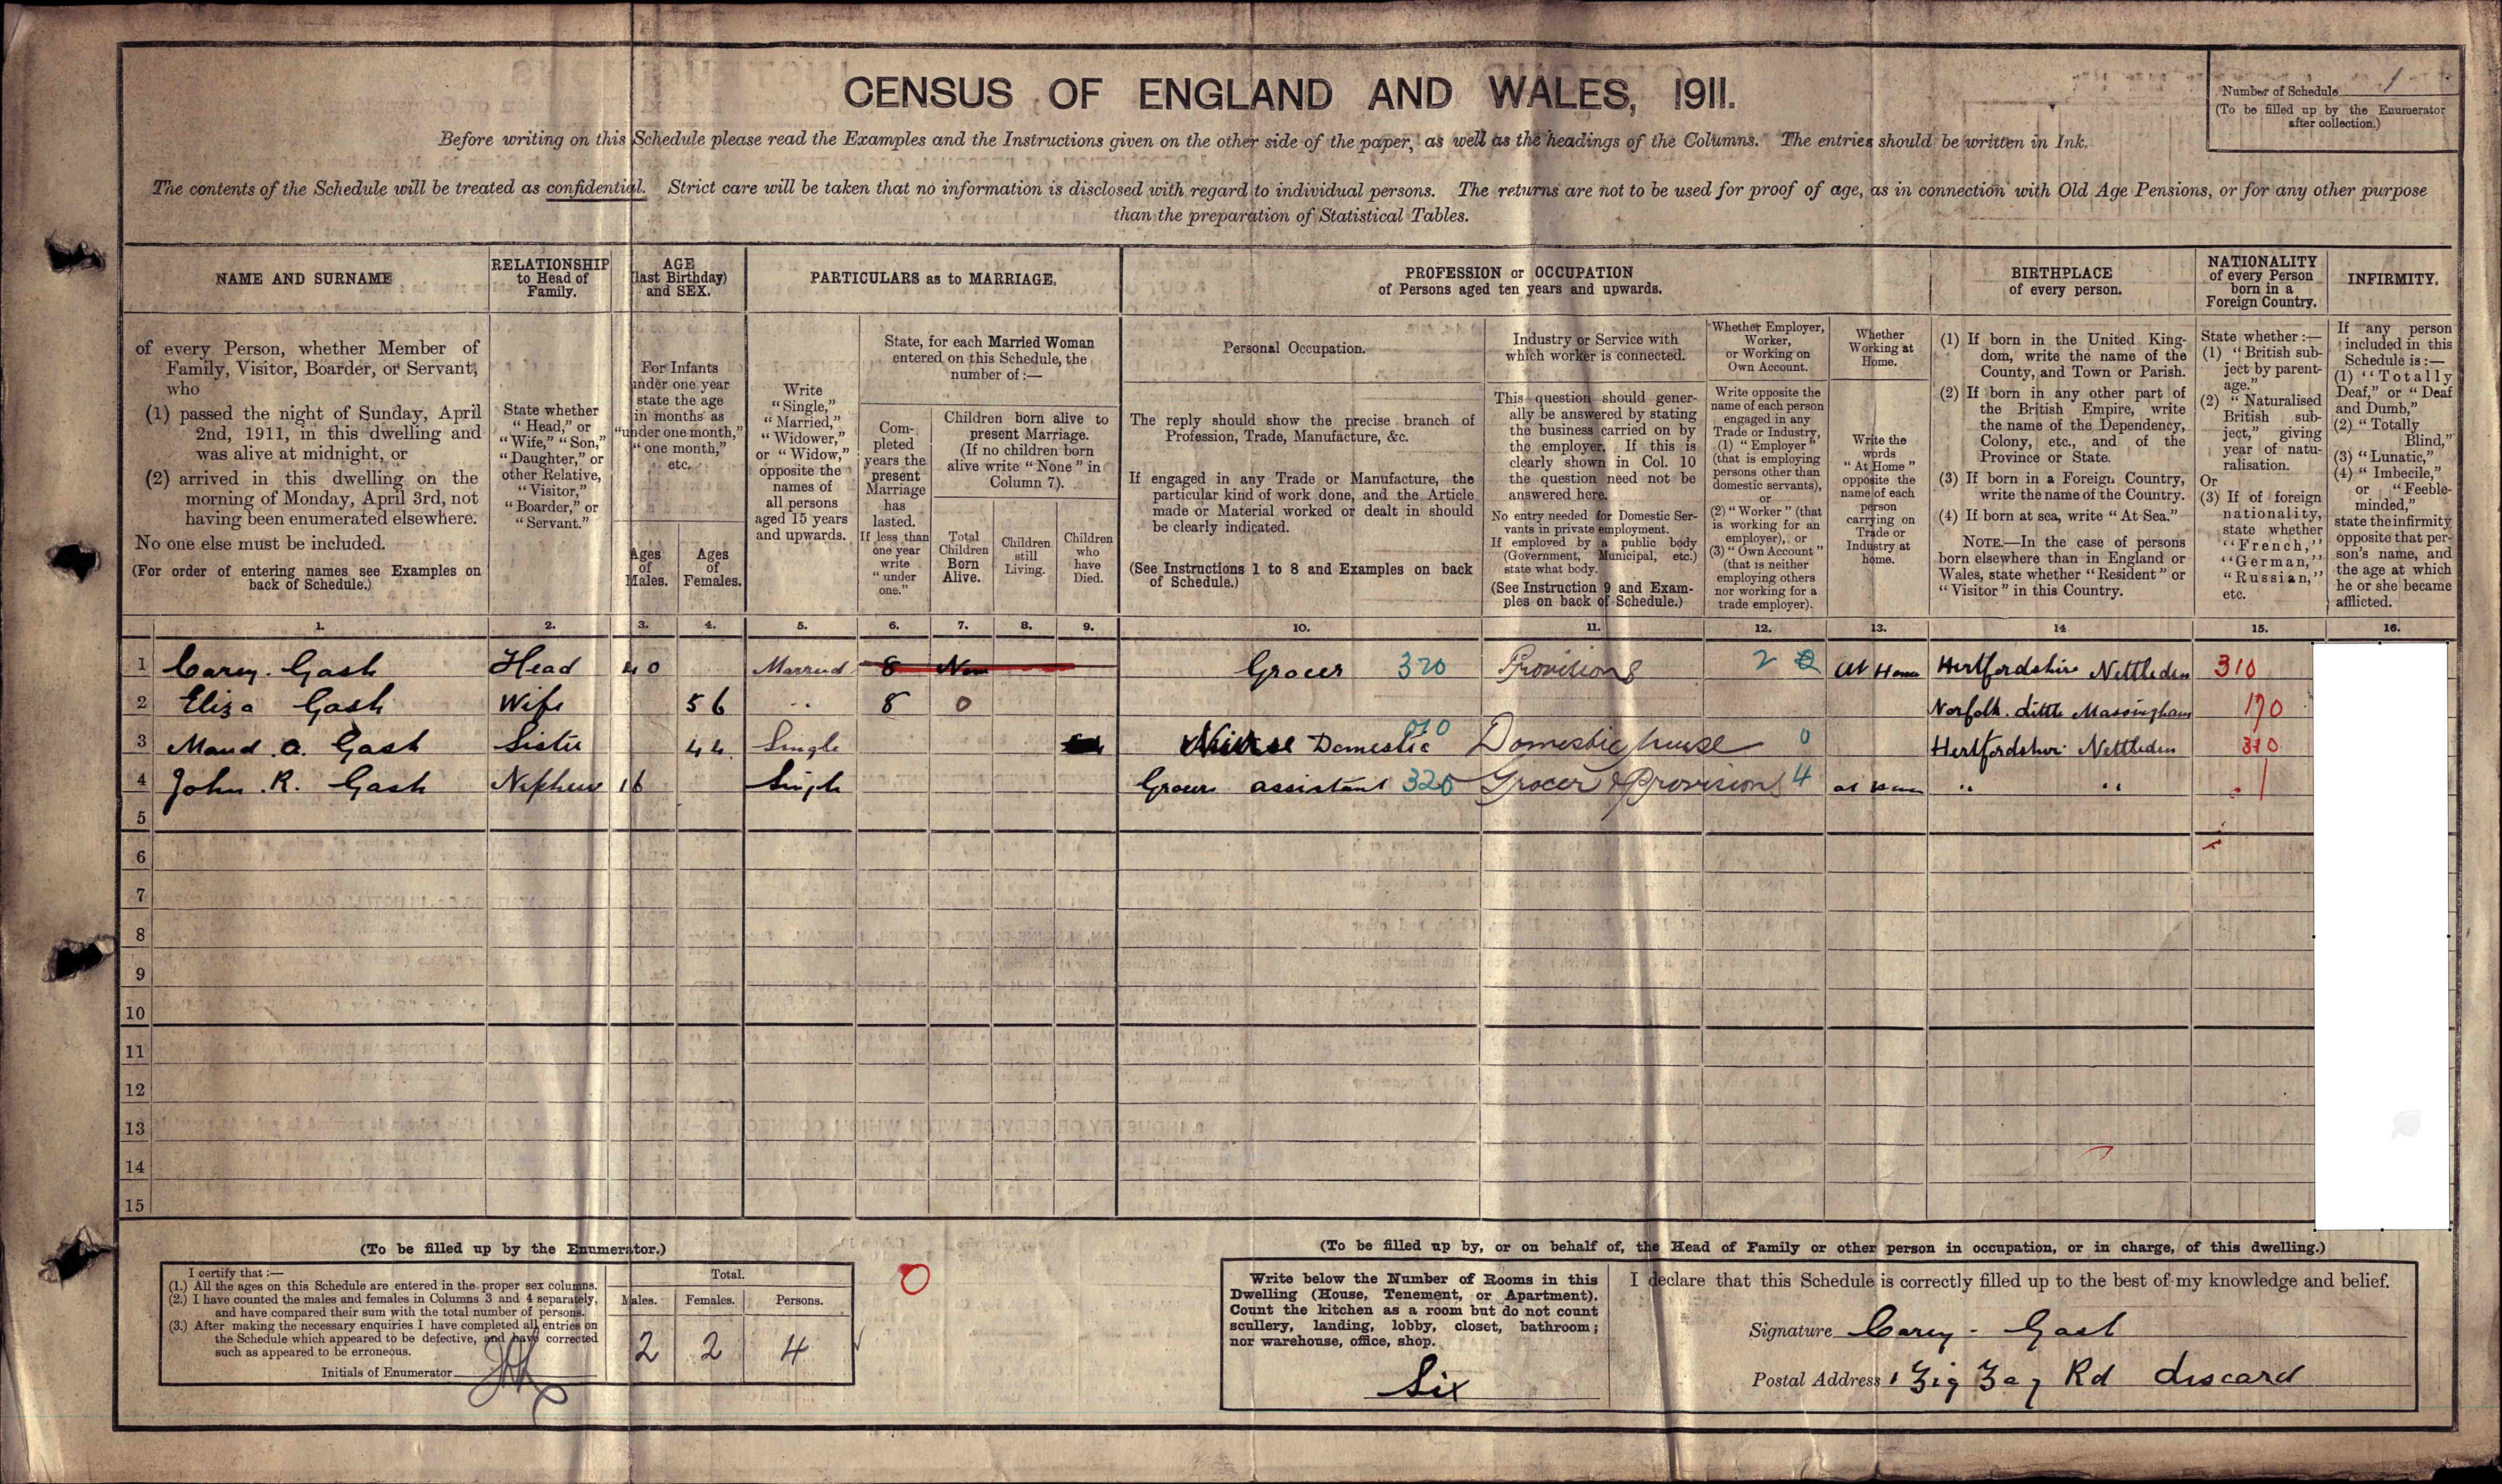 CENSUS OF ENGLAND AND WALES, 1911.
Number of Schedule 1
(To be filled up by the Enumerator
after collection.)
Before writing on this Schedule please read the Examples and the Instructions given on the other side of the paper, as well as the headings of the Columns. The entries should be written in Ink.
The contents of the Schedule will be treated as confidential. Strict care will be taken that no information is disclosed with regard to individual persons. The returns are not to be used for proof of age, as in connection with Old Age Pensions, or for any other purpose
than the preparation of Statistical Tables.
NAME AND SURNAME
of every Person, whether Member of
Family, Visitor, Boarder, or Servant,
who
(1) passed the night of Sunday, April
2nd, 1911, in this dwelling and
was alive at midnight, or
(2) arrived in this dwelling on the
morning of Monday, April 3rd, not
having been enumerated elsewhere.
No one else must be included.
(For order of entering names see Examples on
back of Schedule.)
RELATIONSHIP
to Head of
Family.
State whether
"Head," or
"Wife," "Son,"
"Daughter," or
other Relative,
"Visitor,"
"Boarder," or
"Servant."
AGE
(last Birthday)
and SEX.
For Infants
under one year
state the age
in months as
"under one month,"
"one month,"
etc.
Ages
of
Males.
Ages
of
Females.
PARTICULARS as to MARRIAGE.
Write
"Single,"
"Married,"
"Widower,"
or "Widow,"
opposite the
names of
all persons
aged 15 years
and upwards.
State, for each Married Woman
entered on this Schedule, the
number of :—
Com-
pleted
years the
present
Marriage
has
lasted.
If less than
one year
write
"under
one."
Children born alive to
present Marriage.
(If no children born
alive write "None" in
Column 7).
Total
Children
Born
Alive.
Children
still
Living.
Children
who
have
Died.
PROFESSION or OCCUPATION
of Persons aged ten years and upwards.
Personal Occupation.
The reply should show the precise branch of
Profession, Trade, Manufacture, &c.
If engaged in any Trade or Manufacture, the
particular kind of work done, and the Article
made or Material worked or dealt in should
be clearly indicated.
(See Instructions 1 to 8 and Examples on back
of Schedule.)
Industry or Service with
which worker is connected.
This question should gener-
ally be answered by stating
the business carried on by
the employer. If this is
clearly shown in Col. 10
the question need not be
answered here.
No entry needed for Domestic Ser-
vants in private employment.
If employed by a public body
(Government, Municipal, etc.)
state what body.
(See Instruction 9 and Exam-
ples on back of Schedule.)
Whether Employer,
Worker,
or Working on
Own Account.
Write opposite the
name of each person
engaged in any
Trade or Industry,
(1) "Employer"
(that is employing
persons other than
domestic servants),
or
(2) "Worker" (that
is working for an
employer), or
(3) "Own Account"
(that is neither
employing others
nor working for a
trade employer).
Whether
Working at
Home.
Write the
words
"At Home"
opposite the
name of each
person
carrying on
Trade or
Industry at
home.
BIRTHPLACE
of every person.
(1) If born in the United King-
dom, write the name of the
County, and Town or Parish.
(2) If born in any other part of
the British Empire, write
the name of the Dependency,
Colony, etc., and of the
Province or State.
(3) If born in a Foreign Country,
write the name of the Country.
(4) If born at sea, write "At Sea."
NOTE.—In the case of persons
born elsewhere than in England or
Wales, state whether "Resident" or
"Visitor" in this Country.
NATIONALITY
of every Person
born in a
Foreign Country.
State whether :—
(1) "British sub-
ject by parent-
age."
(2) "Naturalised
British sub-
ject," giving
year of natu-
ralisation.
Or
(3) If of foreign
nationality,
state whether
"French,"
"German,"
"Russian,"
etc.
INFIRMITY.
If any person
included in this
Schedule is :—
(1) "Totally
Deaf," or "Deaf
and Dumb,"
(2) "Totally
Blind,"
(3) "Lunatic,"
(4) "Imbecile,"
or "Feeble-
minded,"
state the infirmity
opposite that per-
son's name, and
the age at which
he or she became
afflicted.
1. 2. 3. 4. 5. 6. 7. 8. 9. 10. 11. 12. 13. 14 15. 16.
1 Carey. Gash Head 40 Married 8 Grocer 320 Provisions 2 At Home Hertfordshire Nettleden 310
2 Eliza Gash Wife 56 " 8 0 Norfolk. Little Massingham 170
3 Maud. A. Gash Sister 44 Single Nurse Domestic 010 Domestic nurse 0 Hertfordshire Nettleden 310
4 John. R. Gash Nephew 16 Single Grocers assistant 320 Grocer & Provisions 4 at Home " "
5
6
7
8
9
10
11
12
13
14
15
(To be filled up by the Enumerator.)
I certify that :—
(1.) All the ages on this Schedule are entered in the proper sex columns.
(2.) I have counted the males and females in Columns 3 and 4 separately,
and have compared their sum with the total number of persons.
(3.) After making the necessary enquiries I have completed all entries on
the Schedule which appeared to be defective, and have corrected
such as appeared to be erroneous.
Initials of Enumerator
Total.
Males. Females. Persons.
2 2 4
0
(To be filled up by, or on behalf of, the Head of Family or other person in occupation, or in charge, of this dwelling.)
Write below the Number of Rooms in this
Dwelling (House, Tenement, or Apartment).
Count the kitchen as a room but do not count
scullery, landing, lobby, closet, bathroom;
nor warehouse, office, shop.
Six
I declare that this Schedule is correctly filled up to the best of my knowledge and belief.
Signature Carey - Gash
Postal Address 1 Zig Zag Rd Liscard